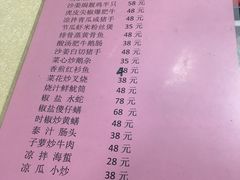 沙姜焗靓鸡半只 58元
虎皮尖椒爆肥牛 48元
凉拌青瓜咸猪手 38元
节瓜虾米粉丝煲 35元
排骨蒸黄骨鱼 48元
酸汤肥牛鹅肠 48元
沙姜白切猪手 48元
菜心炒鹅杂 35元
香煎红衫鱼 48元
菜花炒叉烧 38元
烧汁鲜鱿筒 48元
椒盐水蛇 78元
椒盐傻仔鳝 68元
时椒炒黄鳝 48元
泰汁肠头 38元
子萝炒牛肉 48元
凉拌海蜇 28元
凉瓜小炒 38元